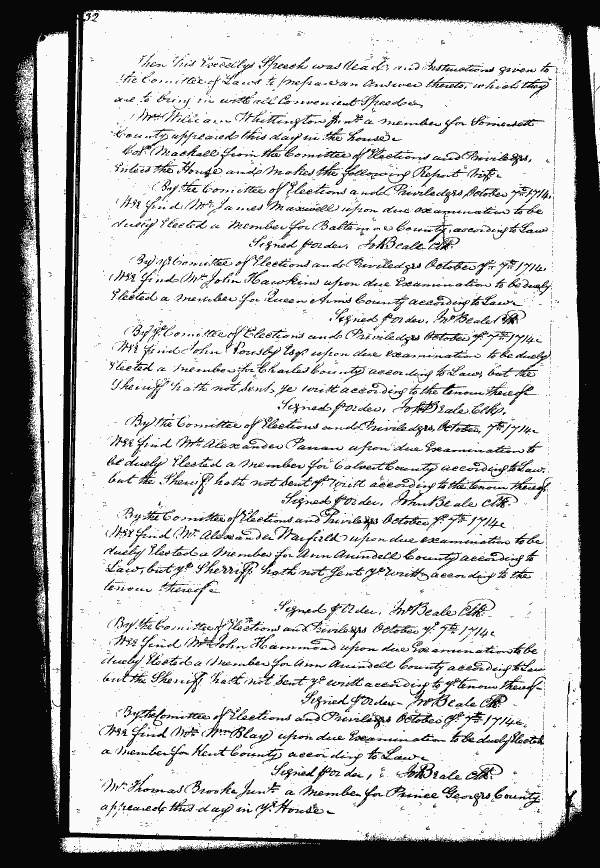 32
Then His Excellys Speech was Read, and Instructions given to
the Comittee of Laws to prepare an Answer thereto, which they
are to bring in with all Convenient Speed
Mr. William Whittington Junr. a member for Somersett
County appeared this day in the house
Col. Mackall from the Comittee of Elections and Priviledges,
Enters the House and makes the following Report Vizt.
By the Comittee of Elections and Priviledges October 7th. 1714.
Wee find Mr. James Maxwell upon due examination to be
duely Elected a Member for Baltimore County, according to Law
Signed p order, Jno Beale Clk
By ye Comittee of Elections and Priviledges October ye 7th 1714
Wee find Mr. John Hawkins upon due Examination to be duely
Elected a member for Queen Anns County according to Law
Signed p order, Jno Beale Clk
By ye Comittee of Elections and Priviledges October ye 7th 1714
Wee find John Esqr upon due examination to be duely
Elected a member for Charles County according to Law, but the
Sheriff hath not sent ye writt according to the tenour thereof
Signed p order, Jno Beale Clk.
By the Comittee of Elections and Priviledges October, 7th 1714
Wee find Mr. Alexander Parran upon due Examination to
be duely Elected a Member for Calvert County according to Law,
but the Sheriff hath not sent ye Writt according to the tenour thereof
Signed p Order, John Beale Clk
By the Comittee of Elections and Priviledges October ye 7th 1714
Wee find Mr. Alexander Warfield upon due examination to be
duely Elected a Member for Ann Arundell County according to
Law, but ye Sherriff hath not Sent ye Writt according to the
tenour thereof
Signed p Order, Jno Beale Clk.
By the Comittee of Elections and Priviledges October ye 7th 1714
Wee find Mr. John Hammond upon due Examination to be
duely Elected a Member for Ann Arundell County according to Law
but the Sheriff hath not Sent ye writt according to ye tenour thereof
Signed p Order Jno Beale Clk
By the Comittee of Elections and Priviledges October ye 7th 1714
Wee find Mr. Wm. Blay upon due Examination to be duely Elected
a member for Kent County according to Law
Signed p Order, Jno Beale Clk.
Mr. Thomas Brooke Junr. a member for Prince Georges County
appeared this day in ye House